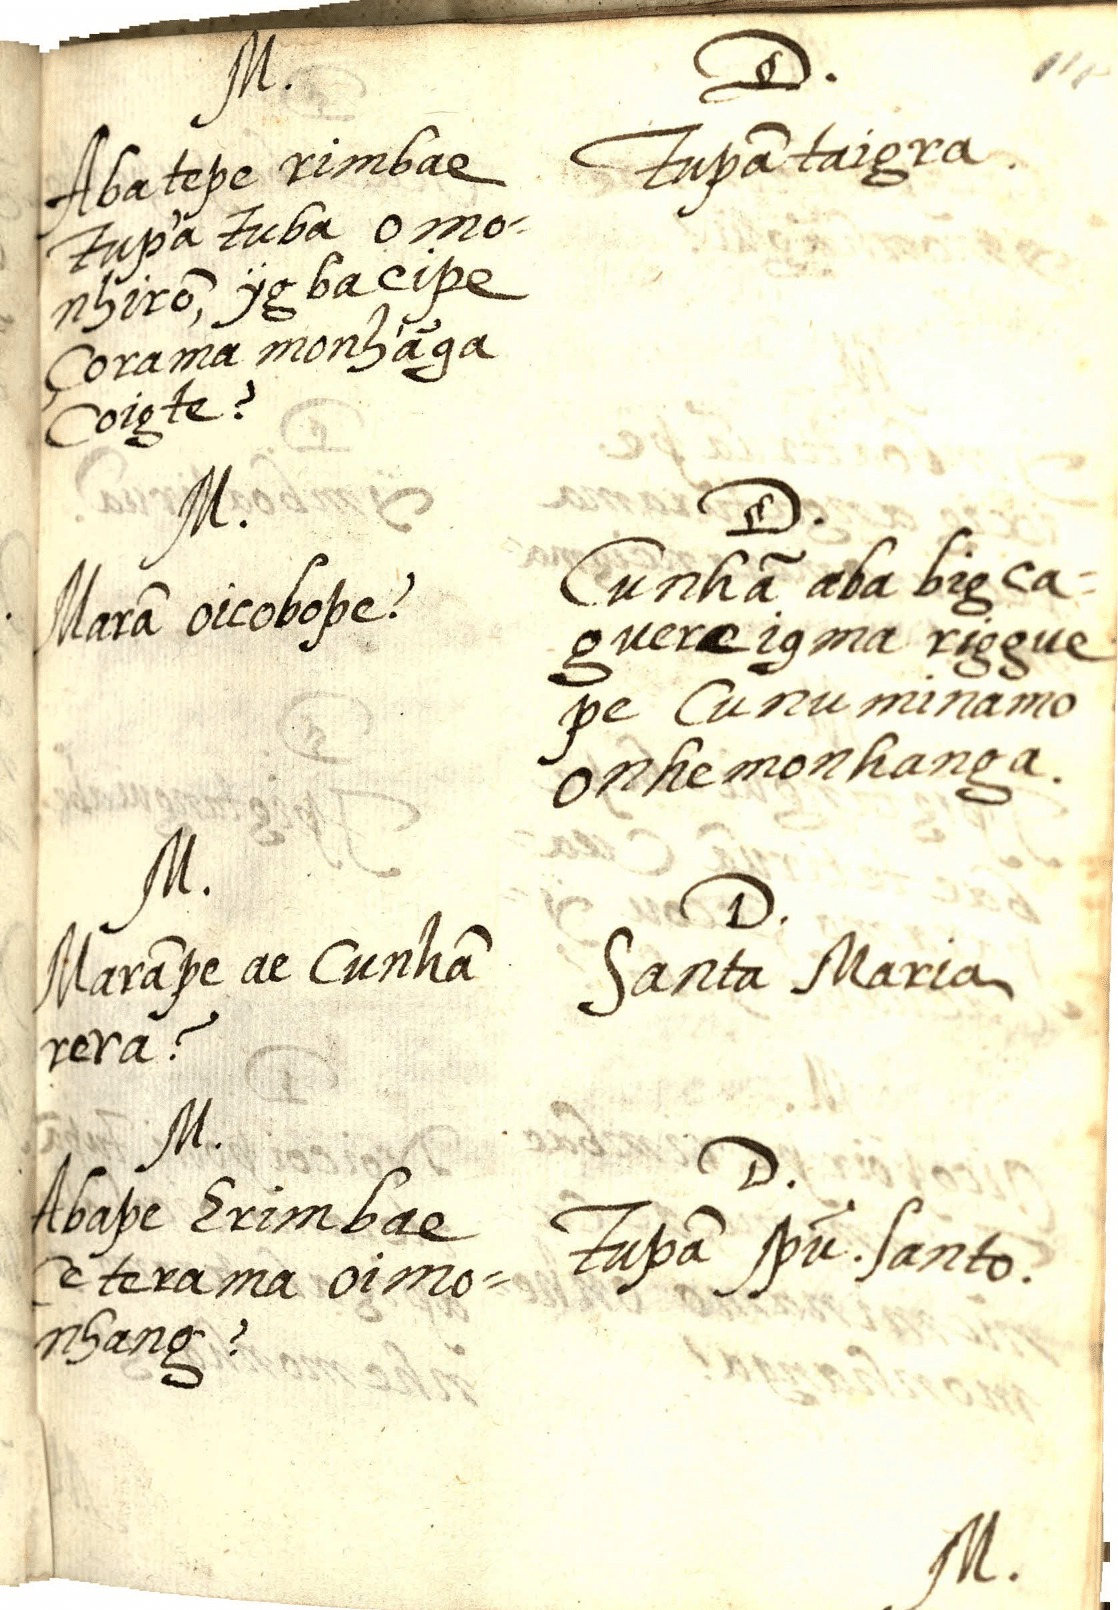 M.
Aba tepe rimbae
tupã tuba omo-
nhirõ, ÿg bacipe
çorama monhãga
coigte?
D.
Tupã taigra.
M.
Marã oicobope?
D.
Cunhã aba bigca-
guereigma riggue
pe Cunuminamo
onhemonhanga.
M.
Marãpe ae Cunhã
rera?
D.
Santa Maria
M.
Abape Erimbae
cẽterama oimo-
nhang?
D.
Tupã spũ. Santo.
M.